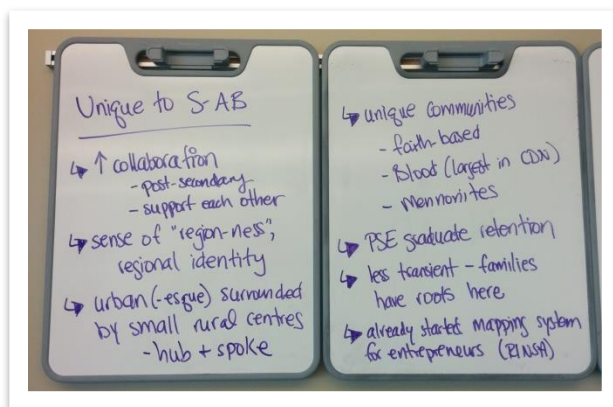 Unique to S-AB
↳ ↑ collaboration
- post-secondary
- support each other
↳ sense of "region-ness";
regional identity
↳ urban(-esque) surrounded
by small rural centres
- hub + spoke
↳ unique communities
- faith-based
- Blood (largest in CDN)
- Mennonites
↳ PSE graduate retention
↳ less transient - families
have roots here
↳ already started mapping system
for entrepreneurs (RINSA)